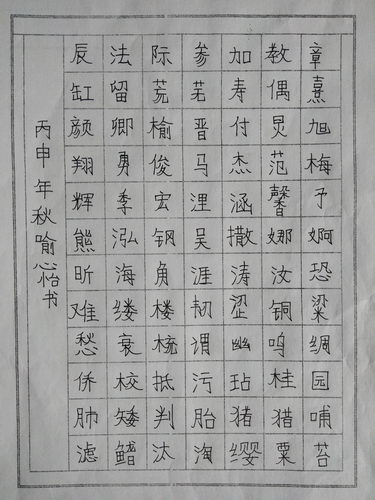 章熹旭梅予婀恐粱绸园哺苔
教偶炅范馨娜汝铜鸣桂猎粟
加寿付杰涵撒涛涩幽玷猪缨
参若晋马浬吴涯韧谓污胎淘
际芫榆俊宏钢角楼梳抵判汰
法留卿勇季泓海缕衰校矮鳍
辰缸颜翔辉熊昕难愁侨肺滤
丙申年秋喻心怡书